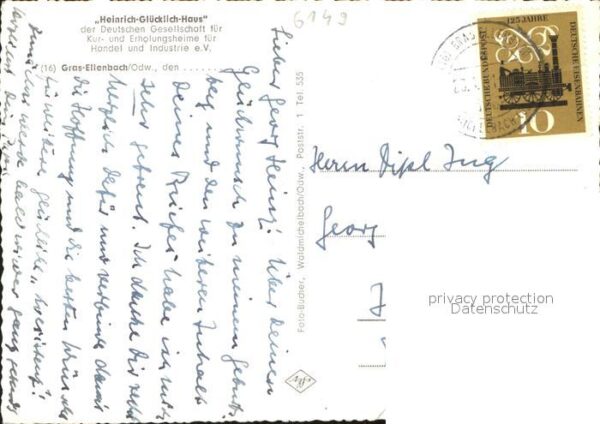 „Heinrich-Glücklich-Haus"
der Deutschen Gesellschaft für
Kur- und Erholungsheime für
Handel und Industrie e.V.
(16) Gras-Ellenbach/Odw., den
6149
Lieber Georg Heinz! Über deinen
Glückwunsch zu meinem Geburts-
tag und den weiteren Inhalt
Deines Briefes habe ich mich
sehr gefreut. Ich danke Dir recht
herzlich dafür und verbinde damit
die Hoffnung und die besten Wünsche
für weitere glückliche
bald wieder ganz gesund
Foto-Bucher, Waldmichelbach/Odw., Poststr. 1 Tel. 535
Herrn Dipl Ing
Georg
J
privacy protection
Datenschutz
125 JAHRE
DEUTSCHE EISENBAHNEN
DEUTSCHE BUNDESPOST
10